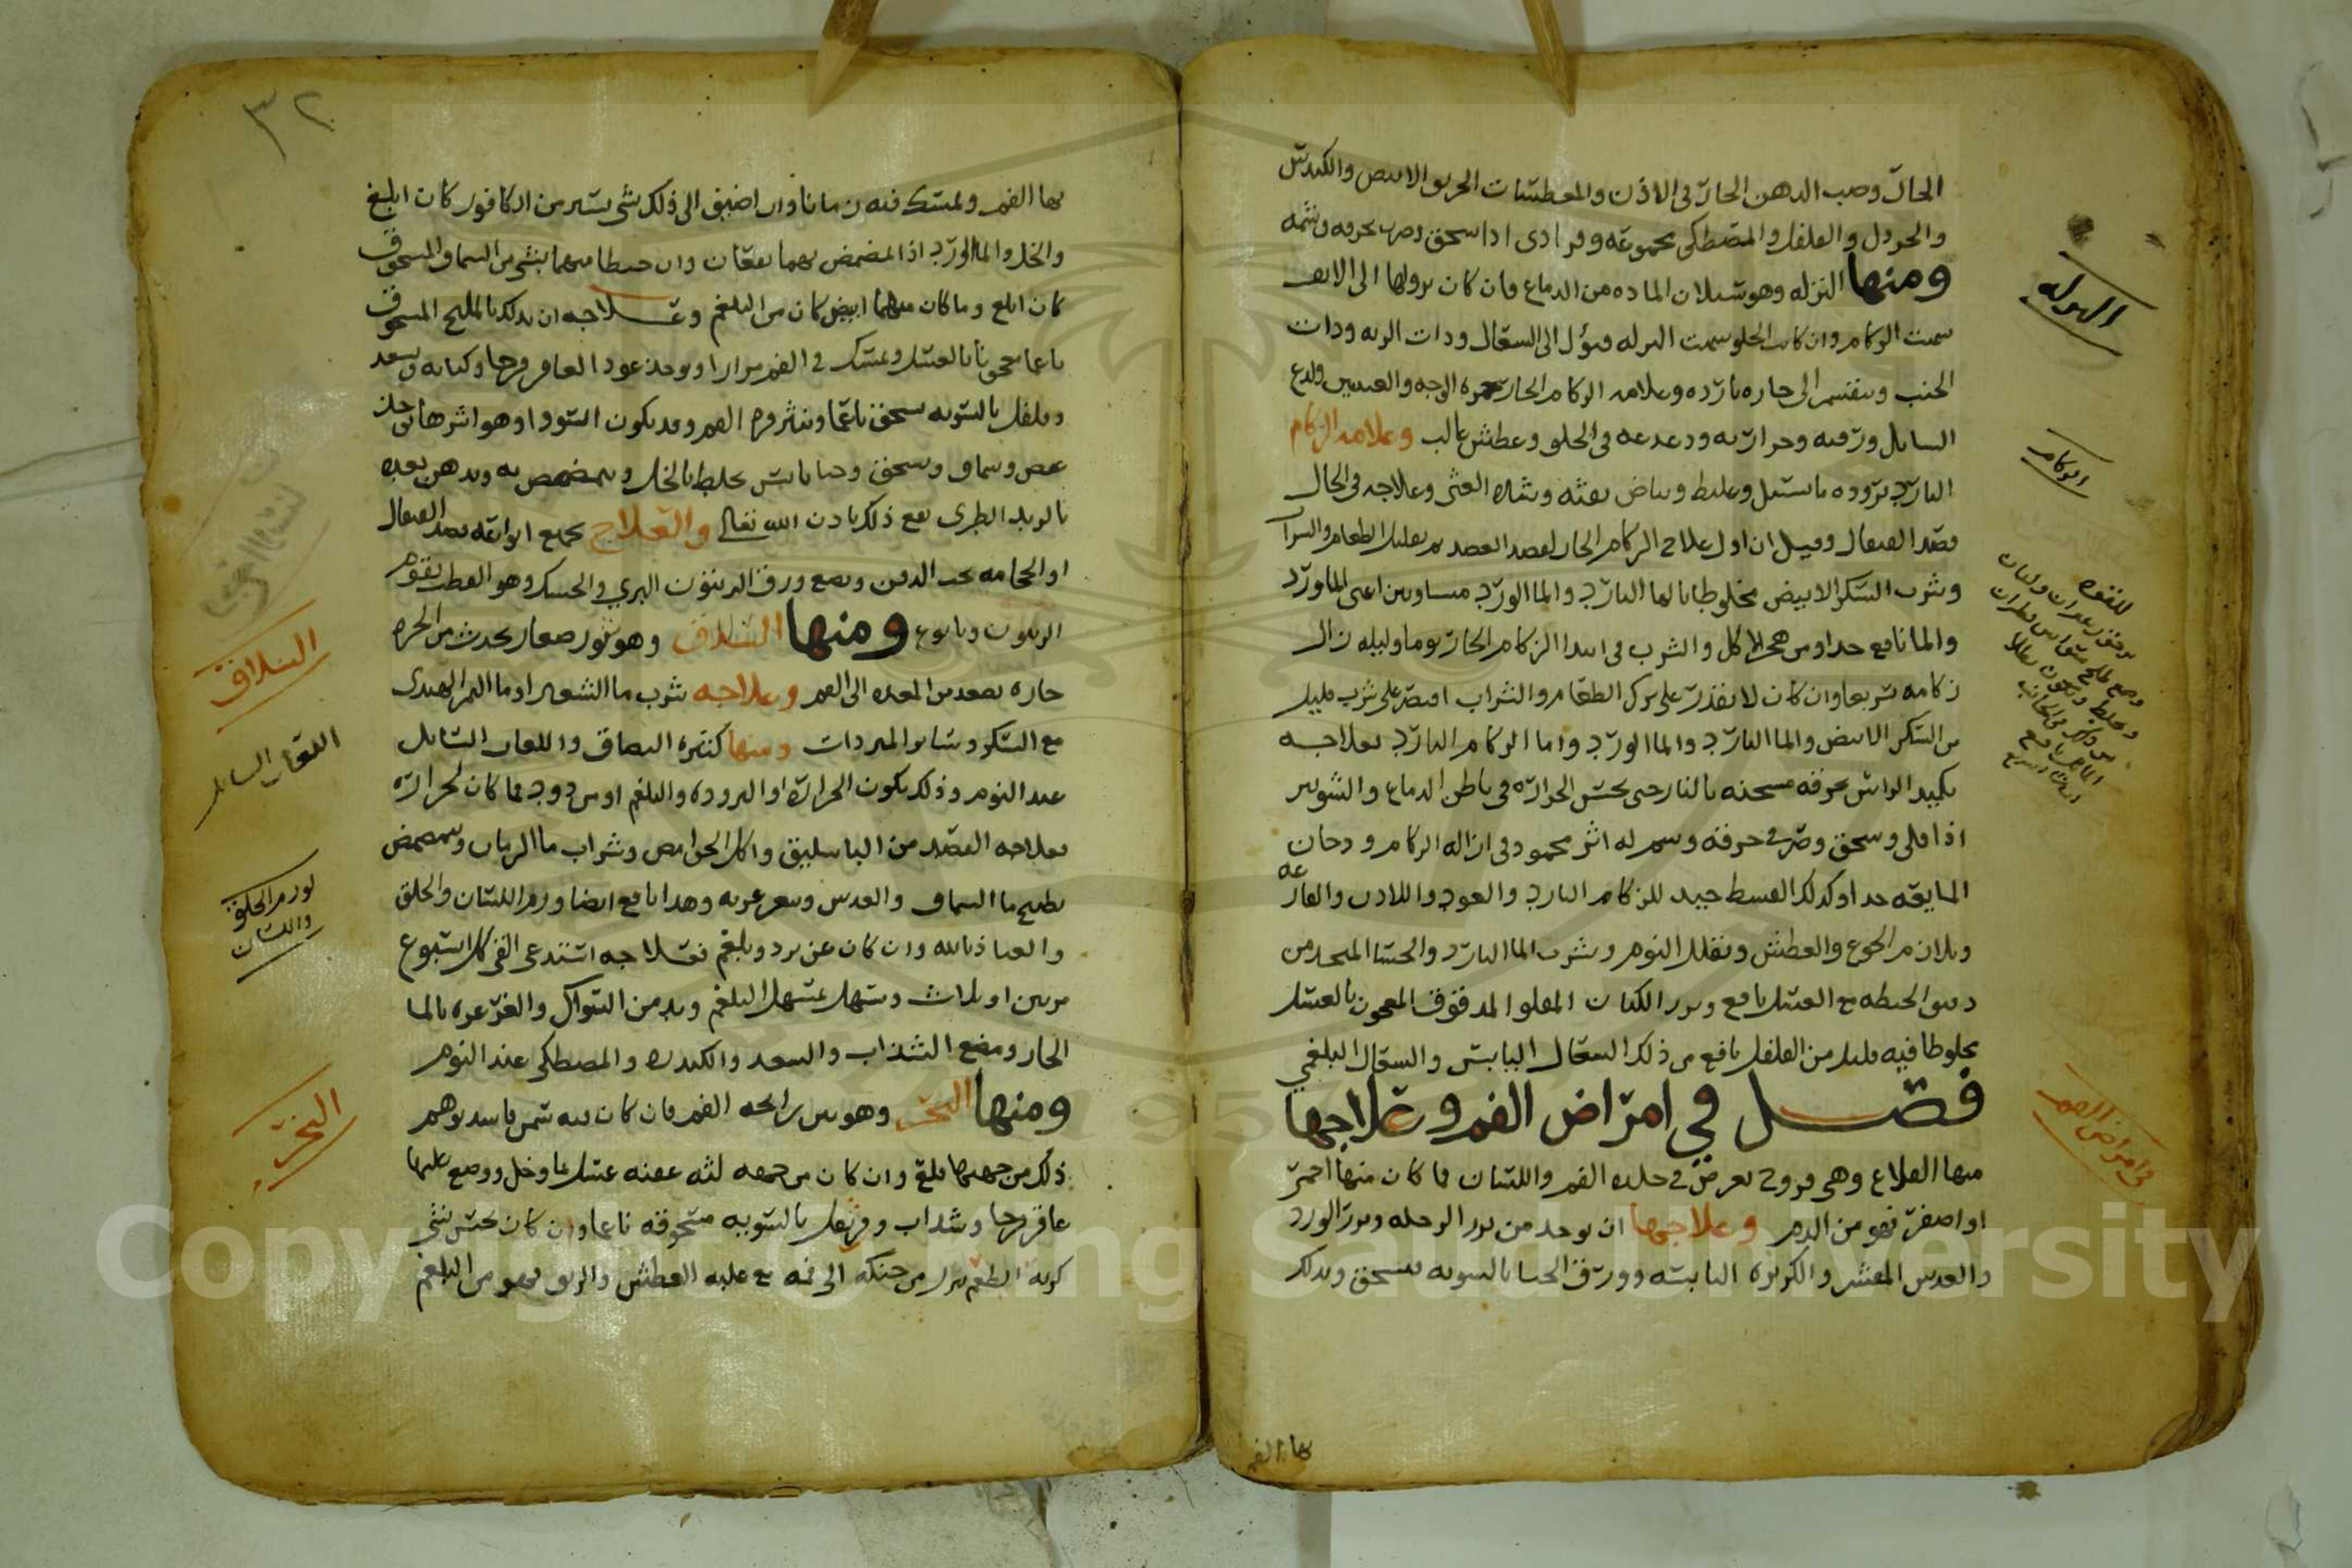 الحار وصب الدهن الحار في الاذن والمعطسات الحربق الابيض والكندس
والخردل والفلفل والمصطكى مجموعه وفرادى اذا سحق وصر بخرقه وشمه
ومنها النزله وهو سيلان الماده من الدماغ فان كان نزولها الى الانف
سميت الزكام وان كانت الحلق سميت النزله وتؤل الى السعال وذات الريه وذات
الجنب وينقسم الى حاره بارده وعلامه الزكام الحار حمره الوجه والعينين ولدع
السايل ورقته وحرارته ودغدغه في الحلق وعطش غالب وعلامه الزكام
البارد بروده ما يسيل وغلظ وبياض نفثه وعلاجه في الحال
فصد القيفال وقيل ان اول علاج الزكام الحار لفصد الفصد ثم تقليل الطعام والشراب
وشرب السكر الابيض مخلوطا بالما البارد والما الورد متساويين اعنى الماورد
والما نافع جدا ومن هجر الاكل والشرب في ابتدا الزكام الحار يوما وليله زال
زكامه سريعا وان كان لا يقدر على ترك الطعام والشراب اقتصر على شرب قليل
من السكر الابيض والما البارد والما الورد واما الزكام البارد فعلاجه
تكميد الراس بخرقه مسخنه بالنار حتى يحس الحراره في باطن الدماغ والشونيز
اذا قلى وسحق وصر في خرقه وشم له اثر محمود في ازاله الزكام ودخان
المايعه جدا وكذلك القسط جيد للزكام البارد والعود واللادن والغار
ويلازم الجوع والعطش وتقليل النوم وشرب الما البارد والحسا المتخد من
دقيق الحنطه مع العسل نافع وبزر الكتان المقلو المدقوق المعجون بالعسل
مخلوطا فيه قليل من الفلفل نافع من ذلك السعال اليابس والسعال البلغمي
فصل في امراض الفم وعلاجها
منها القلاع وهي قروح تعرض في جلده الفم واللسان فما كان منها احمر
او اصفر فهو من الدم وعلاجها ان يوخد من بزر الرجله وبزر الورد
والعدس المقشر والكزبره اليابسه وورق الحنا بالسويه يسحق ويدلك
بها الفم
النزله
الزكام
في امراض الفم
٣٢
بها الفم ويمسك فيه زمانا وان اضيف الى ذلك شي يسير من الكافور كان ابلغ
والخل والما الورد اذا تمضمض بهما نفعان وان خلطا معهما بشي من السماق المسحوق
كان ابلغ وما كان منهما ابيض كان من البلغم وعلاجه ان يدلك بالملح المسحوق
ناعما معجونا بالعسل ويمسك في الفم مرارا ويوخد عود العاقر قرحا وكبابه وسعد
وفلفل بالسويه يسحق ناعما وينثر في الفم وقد يكون السودا وهو اشرها فياخذ
عفص وسماق ويسحق وحنا يابس يخلط بالخل ويتمضمض به ويدهن بعده
بالزبد الطرى نفع ذلك باذن الله تعالى والعلاج بجميع انواعه فصد القيفال
او الحجامه تحت الدقن وبضع ورق الزيتون البري والحسك وهو القطب يقوم
الزيتون ومنها السلاق وهو بثور صغار يحدث من الحره
حاره تصعد من المعده الى الفم وعلاجه شرب ما الشعير او ما التمر الهندى
مع السكر وسائر المبردات ومنها كثره البصاق واللعاب السايل
عند النوم وذلك يكون الحراره او البروده والبلغم او من دود فما كان لحراره
فعلاجه الفصد من الباسليق واكل الحوامض وشراب ما الرمان ويتمضمض
بطبيخ ما السماق والعدس ويتغرغر به وهذا نافع ايضا ورم اللسان والحلق
والعياذ بالله وان كان عن برد وبلغم فعلاجه استدعى القي كل اسبوع
مرتين او ثلاث ويسهل بمسهل البلغم ويدمن السواك والغرغره بالما
الحار ومضع السداب والسعد والكندر والمصطكى عند النوم
ومنها البخر وهو نتن رائحه الفم فان كان فيه سن فاسد توهم
ذلك من جهتها فلتقلع وان كان من جهه لثه عفنه غسل بما وخل ووضع عليها
عاقر قرحا وسداب وقرنفل بالسويه مسحوقه ناعما وان كان يحس بشي
كريه الطعم ينزل من حنكه الى فمه مع غلبه العطش والريق فهو من البلغم
السلاق
اللعاب السايل
لورم الحلق
واللسان
البخر
Copyright © King Saud University
1957